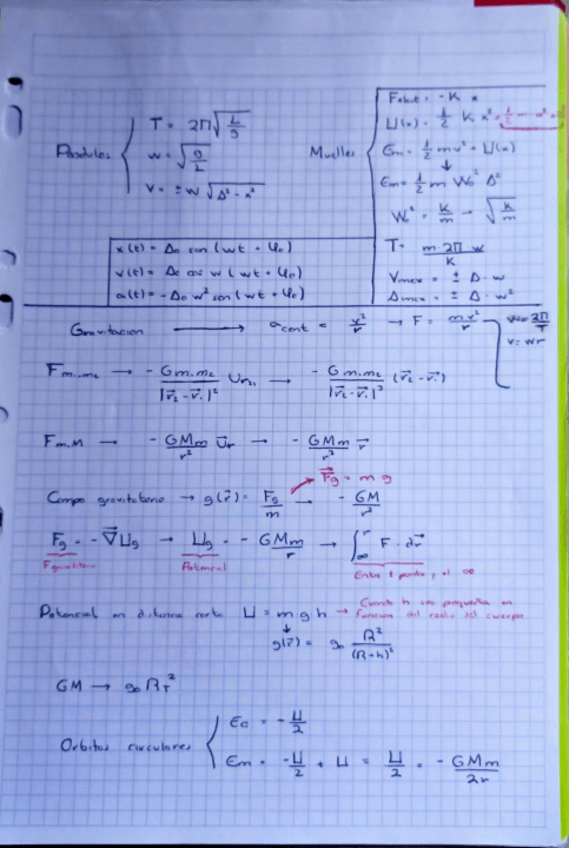 Péndulos { T = 2π√(L/g)
w = √(g/L)
v = ±w √(A² - x²)
Muelles
Felast = -K x
U(x) = 1/2 K x² =
Em = 1/2 mv² + U(x)
↓
Em = 1/2 m W₀² A²
W₀² = K/m → √(K/m)
T = m·2π·w / K
Vmax = ± A · w
Amax = ± A · w²
x(t) = A₀ sen (wt + φ₀)
v(t) = A₀ cos w (wt + φ₀)
a(t) = -A₀ w² sen (wt + φ₀)
Gravitacion → a cent = v²/r → F = mv²/r
w = 2π/T
v = wr
F m₁m₂ → - G m₁m₂ / |r⃗₂ - r⃗₁|² Ur₂₁ → - G m₁m₂ / |r⃗₂ - r⃗₁|³ (r⃗₂ - r⃗₁)
F m.M → - GMm/r² U⃗r → - GMm/r³ r⃗
F⃗g = m g
Campo gravitatorio → g(r⃗) = Fg/m → - GM/r²
Fg = -∇⃗Ug → Ug = - GMm/r → ∫∞^r F · dr⃗
F gravitatoria Potencial Entre 1 punto y el ∞
Potencial en distancia corta U = m g h → Cuando h sea pequeña en
funcion del radio del cuerpo
↓
g(r⃗) = g₀ R²/(R+h)²
GM → g₀ R_T²
Orbitas circulares { Ec = - U/2
Em = -U/2 + U = U/2 = - GMm/2r